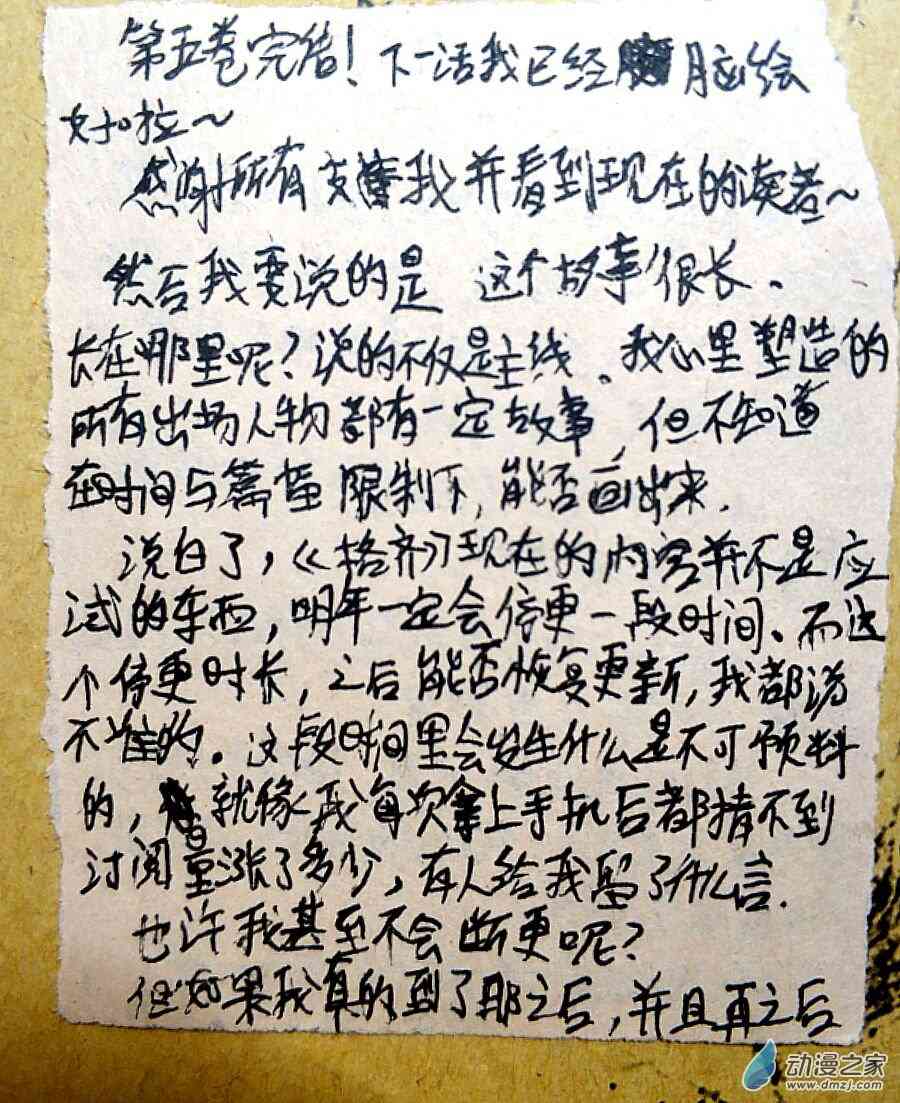 第五卷完结！下一话我已经脑绘
好啦～
感谢所有支持我并看到现在的读者～
然后我要说的是 这个故事很长。
长在哪里呢？说的不仅是主线。我心里塑造的
所有出场人物都有一定故事，但不知道
在时间与篇幅限制下，能否画出来.
说白了，《格斋》现在的内容并不是应
试的东西，明年一定会停更一段时间、而这
个停更时长，之后能否恢复更新，我都说
不准的。这段时间里会发生什么是不可预料
的，就像我每次拿上手机后都猜不到
订阅量涨了多少，有人给我留了什么言.
也许我甚至不会断更呢？
但如果我真的到了那之后，并且再之后
动漫之家
www.dmzj.com